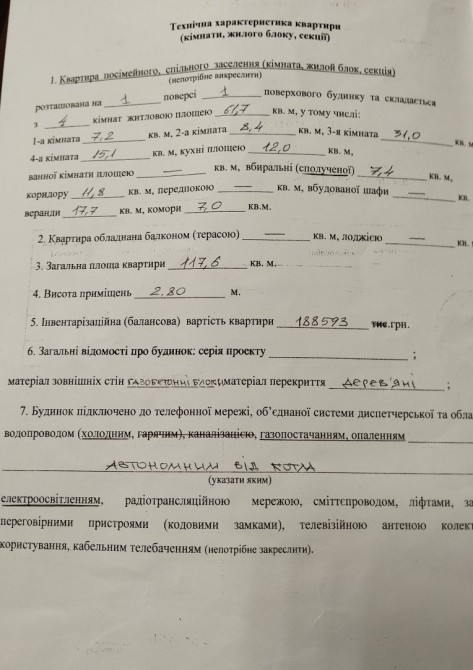 Технічна характеристика квартири
(кімнати, жилого блоку, секції)
1. Квартира посімейного, спільного заселення (кімната, жилой блок, секція)
(непотрібне викреслити)
розташована на 1 поверсі 1 поверхового будинку та складається
з 4 кімнат житловою площею 61,7 кв. м, у тому числі:
1-а кімната 7,2 кв. м, 2-а кімната 8,4 кв. м, 3-я кімната 31,0 кв. м
4-а кімната 15,1 кв. м, кухні площею 12,0 кв. м,
ванної кімнати площею — кв. м, вбиральні (сполученої) 7,4 кв.
коридору 11,8 кв. м, передпокою — кв. м, вбудованої шафи — кв.
веранди 17,7 кв. м, комори 7,0 кв.м.
2. Квартира обладнана балконом (терасою) — кв. м, лоджією — кв.
3. Загальна площа квартири 117,6 кв. м.
4. Висота приміщень 2.80 м.
5. Інвентаризаційна (балансова) вартість квартири 188593 тис.грн.
6. Загальні відомості про будинок: серія проекту ;
матеріал зовнішніх стін газобетонні блоки матеріал перекриття дерев'яні ;
7. Будинок підключено до телефонної мережі, об'єднаної системи диспетчерської та обла
водопроводом (холодним, гарячим), каналізацією, газопостачанням, опаленням
автономним від котла
(указати яким)
електроосвітленням, радіотрансляційною мережою, сміттєпроводом, ліфтами, за
переговірними пристроями (кодовими замками), телевізійною антеною колек
користування, кабельним телебаченням (непотрібне закреслити).